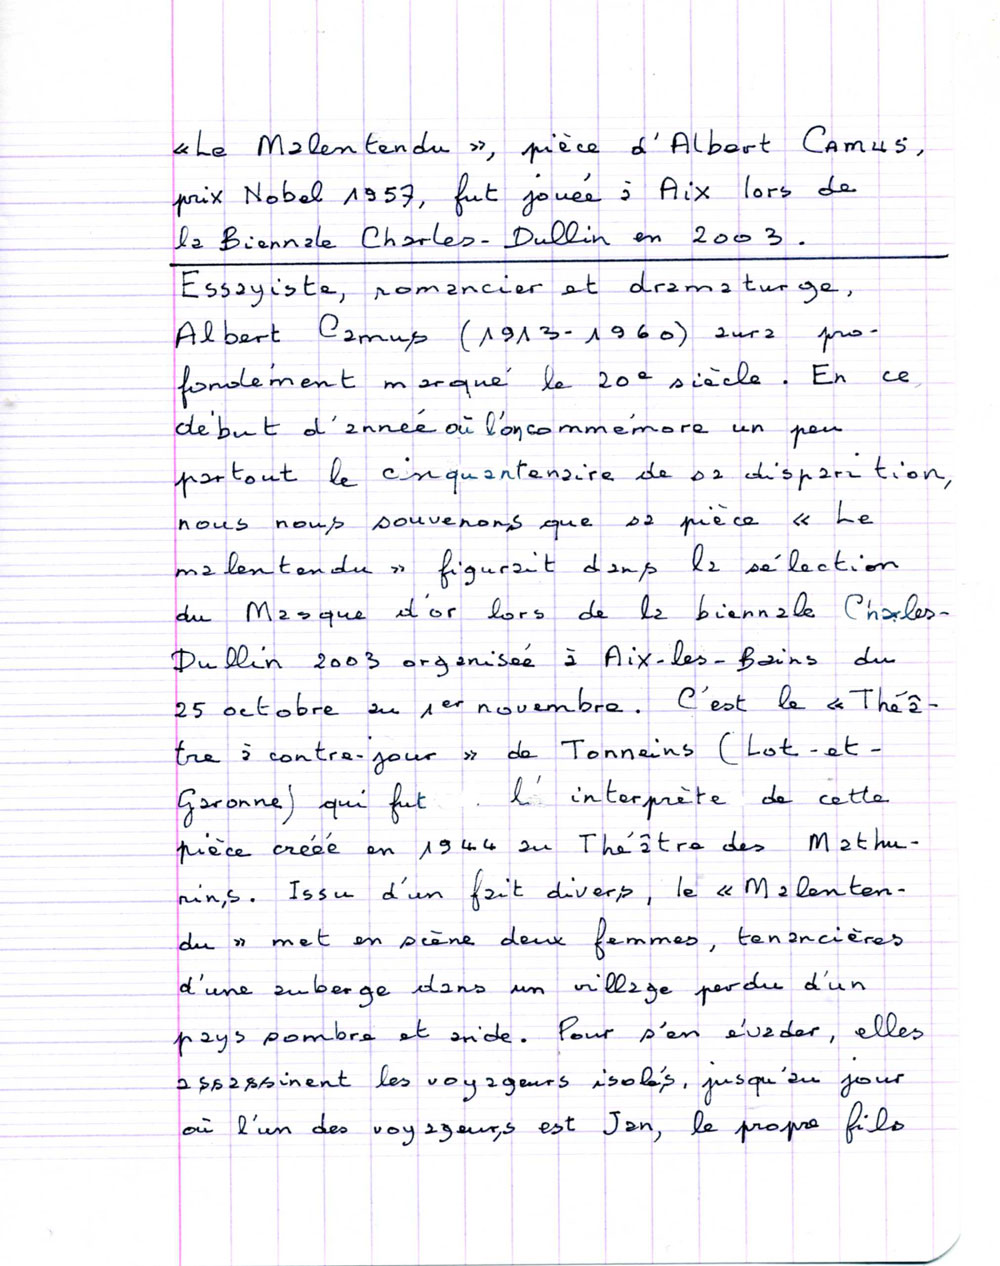 « Le Malentendu », pièce d'Albert CAMUS,
prix Nobel 1957, fut jouée à Aix lors de
la Biennale Charles-Dullin en 2003.
Essayiste, romancier et dramaturge,
Albert Camus (1913-1960) aura pro-
fondément marqué le 20e siècle. En ce
début d'année où l'on commémore un peu
partout le cinquantenaire de sa disparition,
nous nous souvenons que sa pièce « Le
malentendu » figurait dans la sélection
du Masque d'or lors de la biennale Charles-
Dullin 2003 organisée à Aix-les-Bains du
25 octobre au 1er novembre. C'est le « Théâ-
tre à contre-jour » de Tonneins (Lot-et-
Garonne) qui fut l'interprète de cette
pièce créée en 1944 au Théâtre des Mathu-
rins. Issu d'un fait divers, le « Malenten-
du » met en scène deux femmes, tenancières
d'une auberge dans un village perdu d'un
pays sombre et aride. Pour s'en évader, elles
assassinent les voyageurs isolés, jusqu'au jour
où l'un des voyageurs est Jan, le propre fils